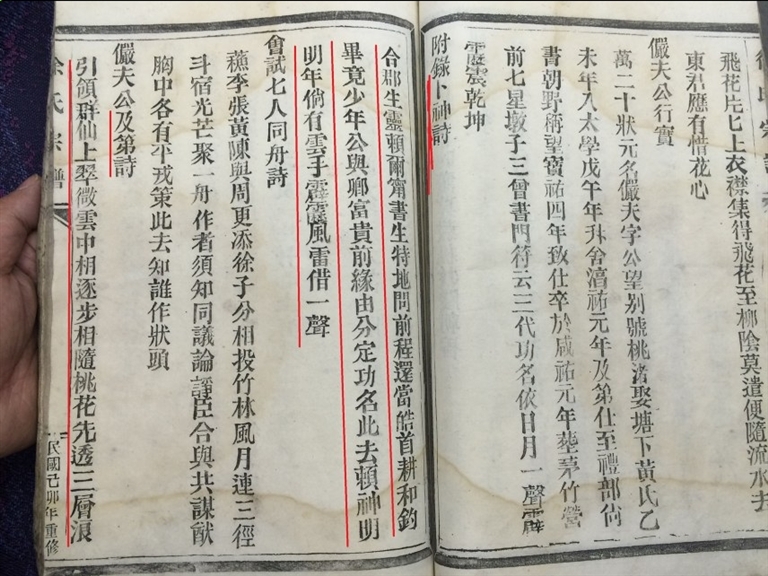 飛花片匕上衣襟集得飛花至柳陰莫遣便隨流水去
東君應有惜花心
儼夫公行實
萬二十狀元名儼夫字公望别號桃渚娶塘下黃氏乙
未年入太學戊午年升舍淯祐元年及第仕至禮部尙
書朝野稱望寶祐四年致仕卒於咸祐元年塟茅竹營
前七星墩子三曾書門符云三代功名依日月一聲霹
靂震乾坤
附錄卜神詩
合郡生靈頼爾甯書生特地問前程還當皓首耕和釣
畢竟少年公與卿富貴前緣由分定功名此去頼神明
明年倘有雲手霹靂風雷借一聲
會試七人同舟詩
蘓李張黃陳與周更添徐子分相投竹林風月連三徑
斗宿光芒聚一舟作者須知同議論諍臣合與共謀猷
胸中各有平戎策此去知誰作狀頭
儼夫公及第詩
引領群仙上翠微雲中相逐步相隨桃花先透三層浪
徐氏宗譜
民國己卯年重修